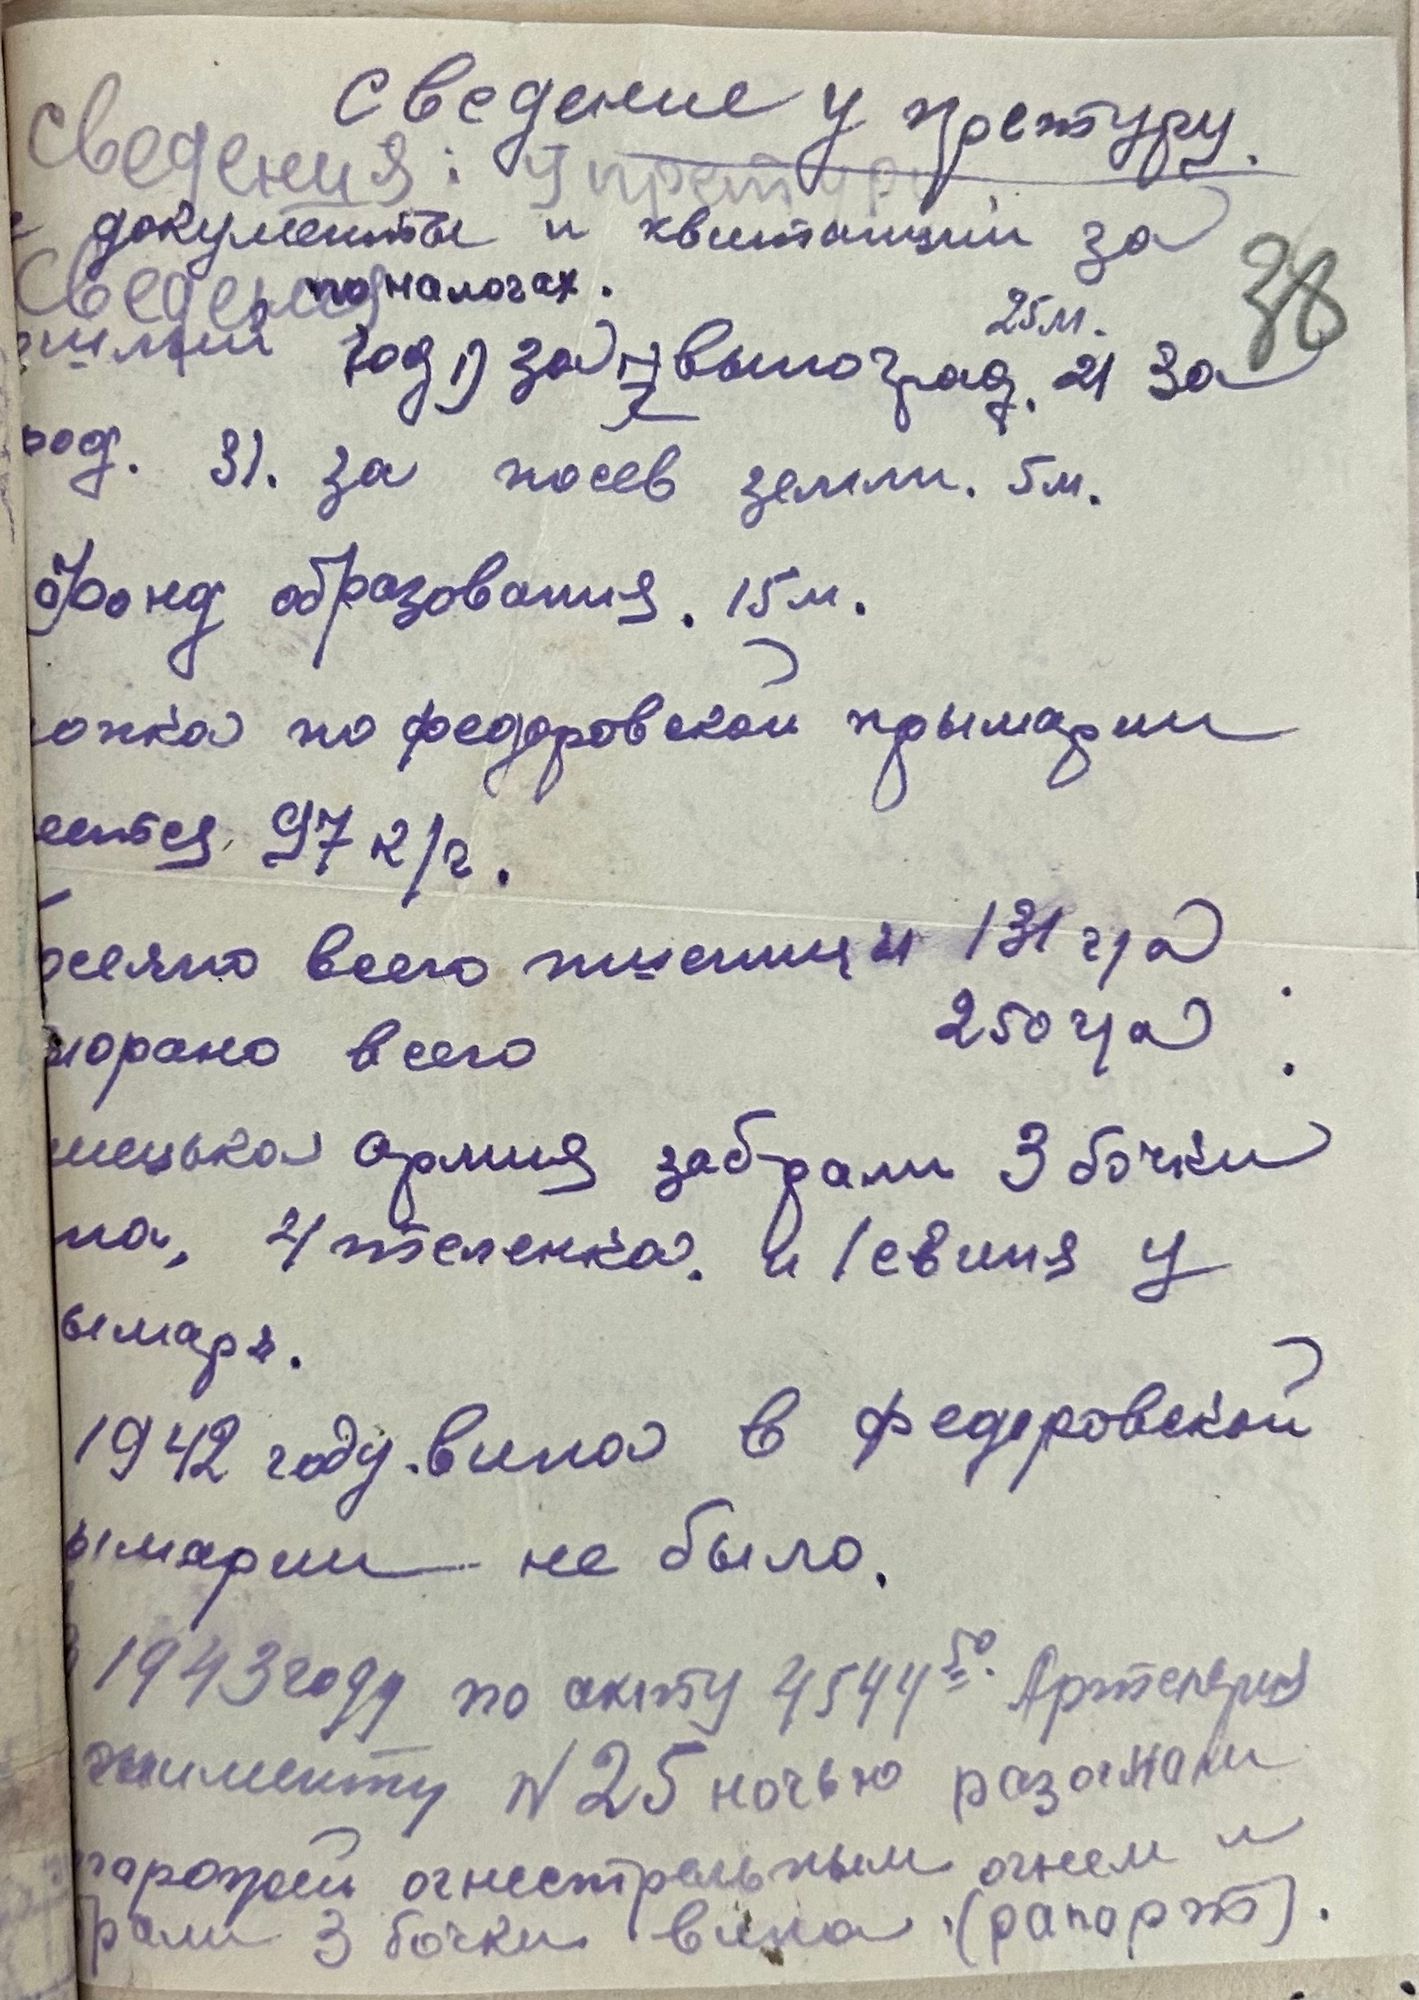 Сведение у претуру.
Сведения: У претуру
документы и квитанции за
Сведения по налогах.
шлый год 1) за виноград. 25м. 2) за
род. 3). за посев земли. 5м.
Фонд образования. 15м.
опка по федоровской прымарии
еится 97 к/г.
осеяно всего пшеницы 131 г/а
порано всего 250 г/а :
мецька армия забрали 3 бочки
на, 4 теленка. и 1 свиня у
ымаря.
1942 году. вина в федоровской
ымарии не было.
В 1943 году по акту 4544 50. Артелерия
жименту N 25 ночью разогнали
сторожей огнестрельным огнем и
рали 3 бочки вина (рапорт).
38